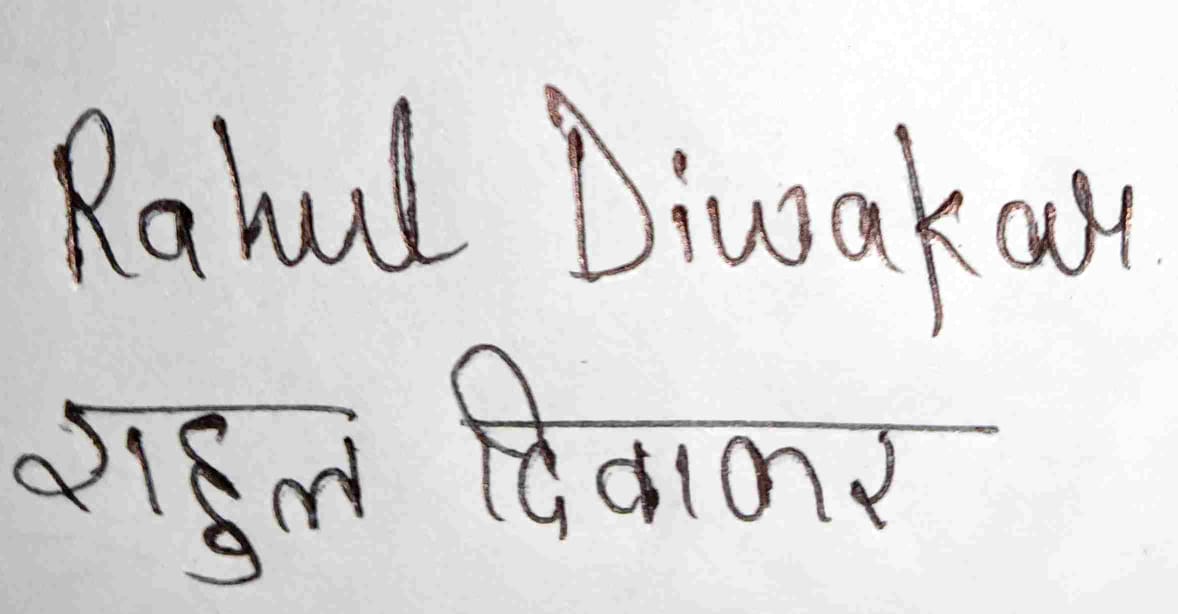 Rahul Diwakar
राहुल दिवाकर